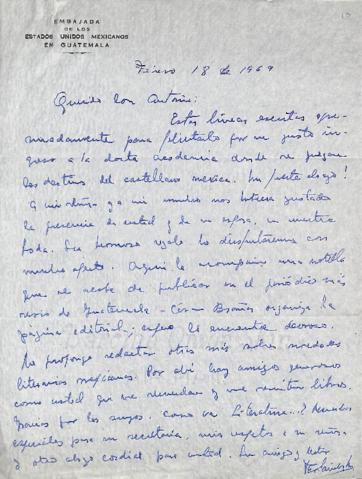 EMBAJADA
DE LOS
ESTADOS UNIDOS MEXICANOS
EN GUATEMALA
18 de 1969
Querido don Antonio:
Estas líneas escritas apre-
suradamente para felicitarlo por su justo in-
greso a la docta academia donde se juegan
los destinos del castellano mexica. Un fuerte abrazo!
A mi y a mi nos hubiera gustado
la presencia de usted y de su esposa, en nuestra
boda. Su regalo lo disfrutaremos con
mucho afecto. Aquí le acompaño una notilla
que se acaba de publicar en el periódico más
de Guatemala - César Brañas organiza la
página editorial; espero la encuentre decorosa.
Me propongo redactar otras más sobre novedades
literarias mexicanas. Por ahí hay amigos generosos
como usted que me recuerdan y me remiten libros.
Gracias por los suyos. Como va Literatura..? Recuerdos
especiales para su secretaria, mis respetos a su
y otro abrazo cordial para usted. Su amigo y lector